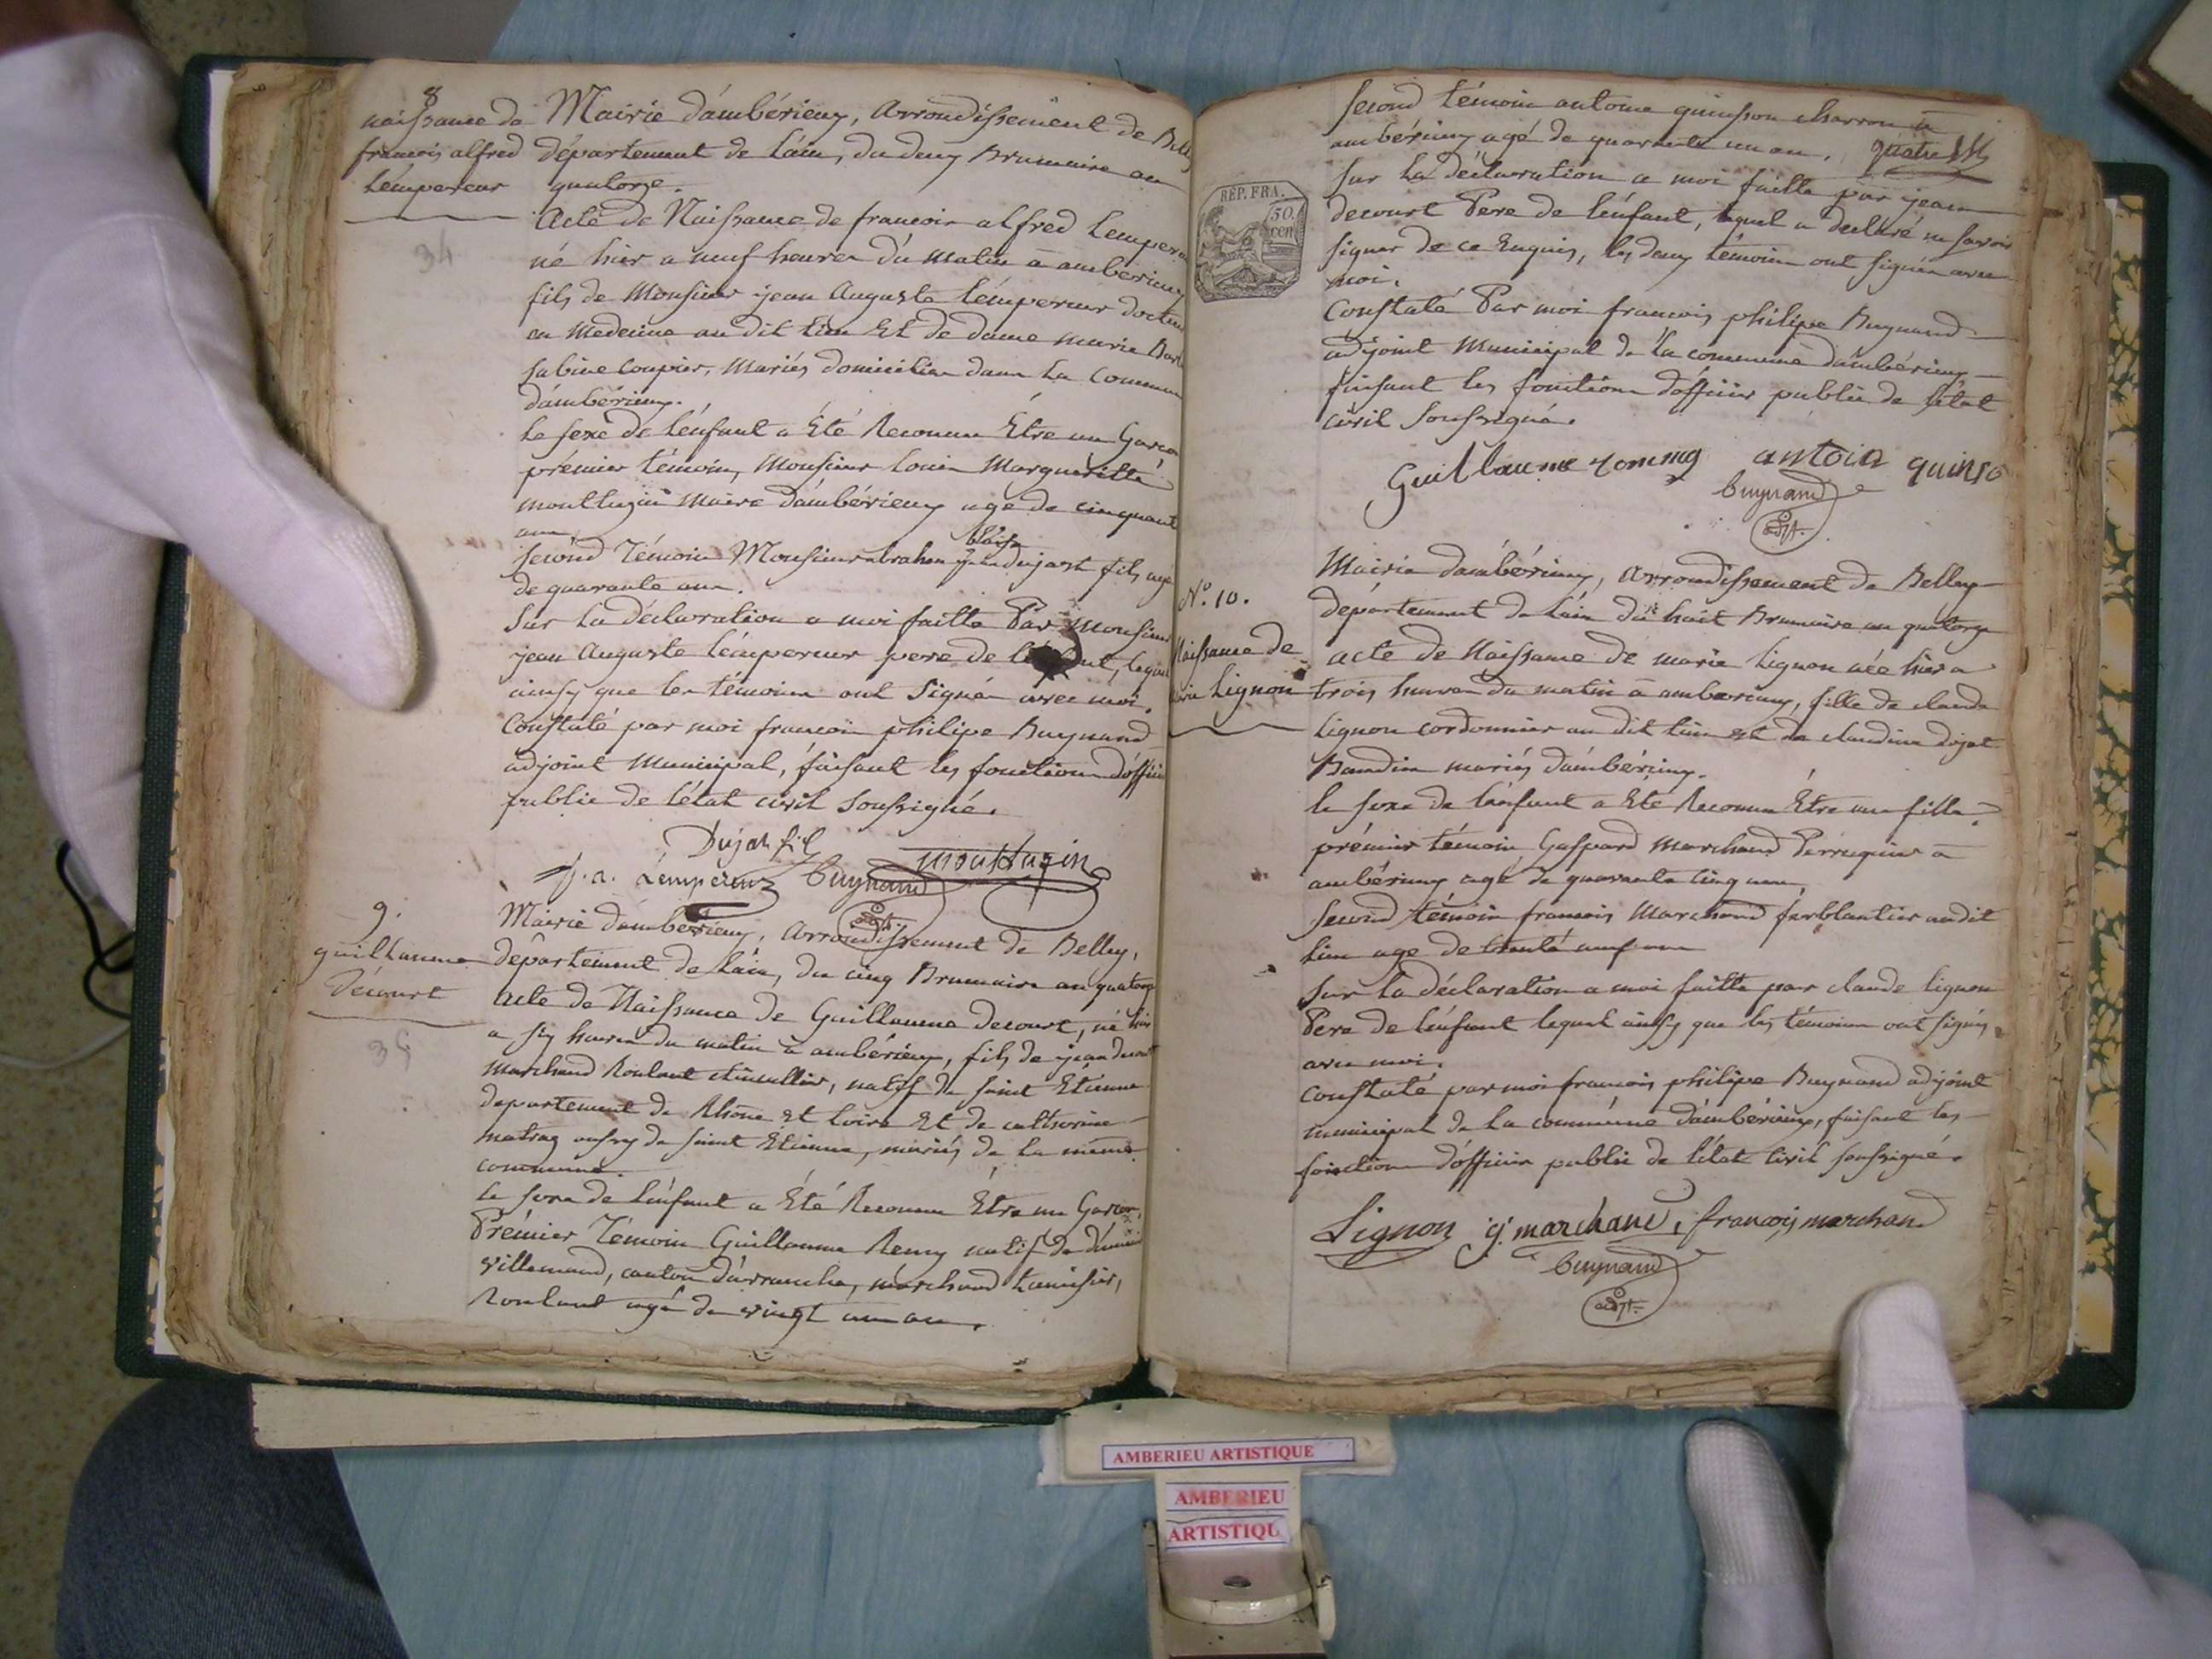 8
naissance de
francois alfred
Lempereur
34
Mairie d'ambérieux, arrondissement de
département de l'ain, du deux Brumaire an
quatorze.
Acte de Naissance de francois alfred
né hier a neuf heures du matin a amberieux
fils de Monsieur jean Auguste lémpereur docteur
en medecine au dit lieu Et de dame marie
sabine coupier, mariés domiciliés dans la commune
d'ambérieux.
le sexe de l'énfant a Eté Reconnu Etre un Garcon
prémier témoin, Monsieur louis Margueritte
monthuzin maire d'ambérieux agé de cinquante
ans
blaise
second Témoin Monsieur abraham dujast fils agé
de quarante ans.
Sur la déclaration a moi faitte Par Monsieur
jean Auguste lémpereur pere de lequel
ainsy que les témoins ont Signés avec moi.
Constaté par moi francois philipe Buynand
adjoint Municipal, faisant les fonctions d'officier
public de l'état civil soussigné.
Dujast fils
j. a. Lempereur Buynand monthuzin
adjt.
9.
guillaume
Décourt
35
Mairie d'ambérieux, arrondissement de Belley,
département de l'ain, du cinq Brumaire an quatorze
acte de Naissance de Guillaume decourt, né hier
a six heures du matin a ambérieux, fils de jean decourt
marchand Roulant natif de saint Etienne
departement de Rhône et loire Et de catherine
aussy de saint Etienne, mariés de la même
commune.
le sexe de l'énfant a Eté Reconnu Etre un Garcon.
Prémier Témoin Guillaume Remy natif de
canton marchand tamisier,
Roulant agé de vingt un an.
second témoin antoine quinson charron a
ambérieux agé de quarante un an.
REP. FRA.
50.
cen
sur la déclaration a moi faitte par jean
decourt Pere de l'énfant, lequel a declaré ne savoir
signer de ce Enquis, les deux témoins ont signés avec
moi.
Constaté Par moi francois philipe Buynand
adjoint Municipal de la commune d'ambérieux
faisant les fonctions d'officier public de l'état
civil soussigné.
Guillaume antoin quinso
Buynand
adjt.
N.º 10.
Naissance de
Lignon
Mairie d'ambérieux, arrondissement de Belley
département de l'ain du huit Brumaire an quatorze
acte de Naissance de marie Lignon née hier a
trois heures du matin a amberieux, fille de claude
Lignon cordonnier au dit lieu et de claudine dojat
Baudin mariés d'ambérieux.
le sexe de l'énfant a Eté Reconnu Etre une fille.
prémier témoin Gaspard Marchand Perruquier a
ambérieux agé de quarante cinq ans,
second témoin francois Marchand ferblantier audit
lieu agé de trenté neuf ans
Sur la déclaration a moi faitte par claude Lignon
Pere de l'énfant lequel ainsy que les témoins ont signés
avec moi.
constaté par moi francois philipe Buynand adjoint
municipal de la commune d'ambérieux, faisant les
fonctions d'officier public de l'état civil soussigné.
Lignon g. marchand, françois marchand
Buynand
adjt.
AMBERIEU ARTISTIQUE
AMBERIEU
ARTISTIQU